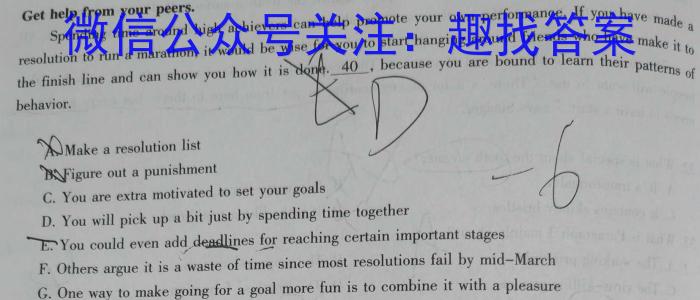 Get help from your peers.
Spending time around high achievers can help promote your own performance. If you have made a
resolution to run a marathon, it would be wise for you to start hanging around friends who have make it to
the finish line and can show you how it is done. 40 , because you are bound to learn their patterns of
behavior.
微信公众号关注：趣找答案
D
-6
A. Make a resolution list
B. Figure out a punishment
C. You are extra motivated to set your goals
D. You will pick up a bit just by spending time together
E. You could even add deadlines for reaching certain important stages
F. Others argue it is a waste of time since most resolutions fail by mid-March
G. One way to make going for a goal more fun is to combine it with a pleasure